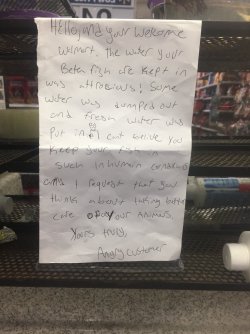 NO
Hello, and your welcome
Walmart. The water your
Beta fish are kept in
was atrocious! Some
water was dumped out
and fresh water was
Put in I cant belive you
keep your fish in
such inhumain conditions
and I request that you
think about taking better
care of your animals.
Yours truly,
Angry customer